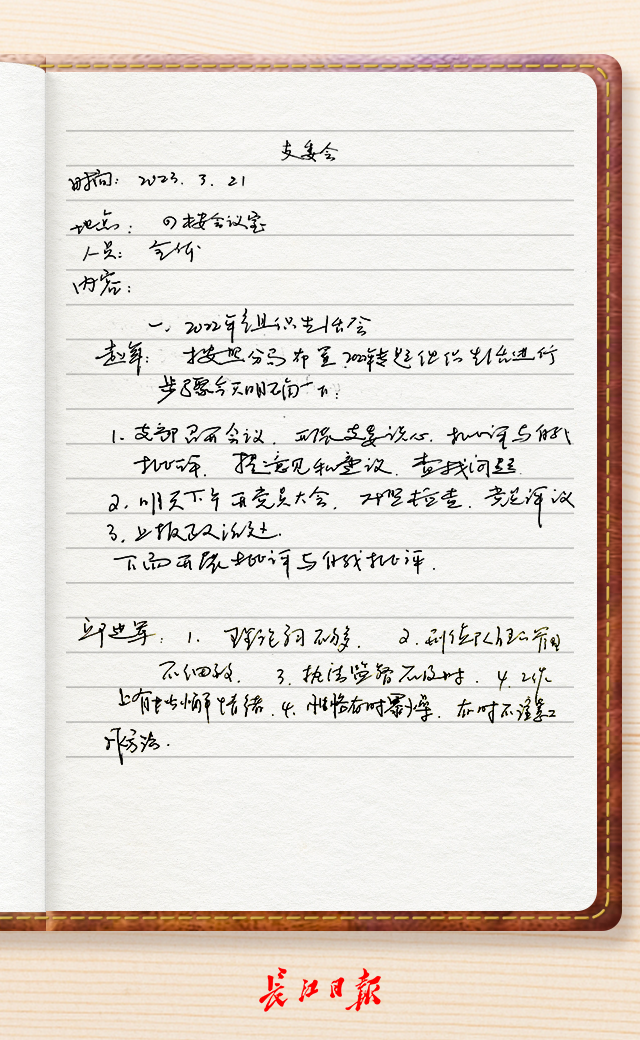 支委会
时间：2023.3.21
地点：四楼会议室
人员：全体
内容：
一、2022年组织生活会
赵军：按照分局布置，2022年专题组织生活进行
步骤今天明确一下：
1.支部召开会议，开展支委谈心，批评与自我
批评，提意见和建议，查找问题
2.明天下午开党员大会，对照检查，党员评议
3.上报政治处
下面开展批评与自我批评.
1.理论学习不够，2.刑侦队伍管理
不细致，3.执法监督不及时，4.工作
上有松懈情绪.4.性格有时暴燥，有时不注意工
作方法.
长江日报